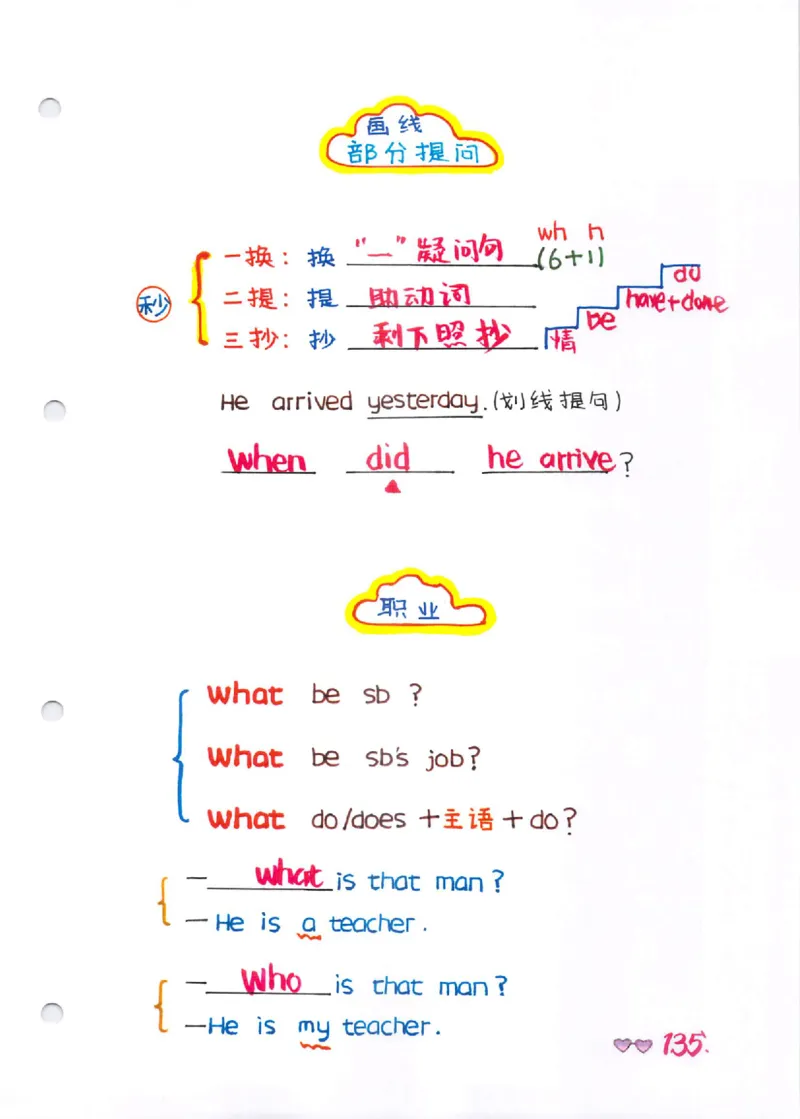 画线
部分提问
wh h
一换：换 "一"疑问句 (6+1)
二提：提 助动词
三抄：抄 剩下照抄
秒
情 be have+done do
He arrived yesterday.(划线提句)
when did he arrive?
职业
what be sb ?
what be sb's job?
what do/does +主语+do?
— what is that man?
— He is a teacher.
— Who is that man?
—He is my teacher.
135.